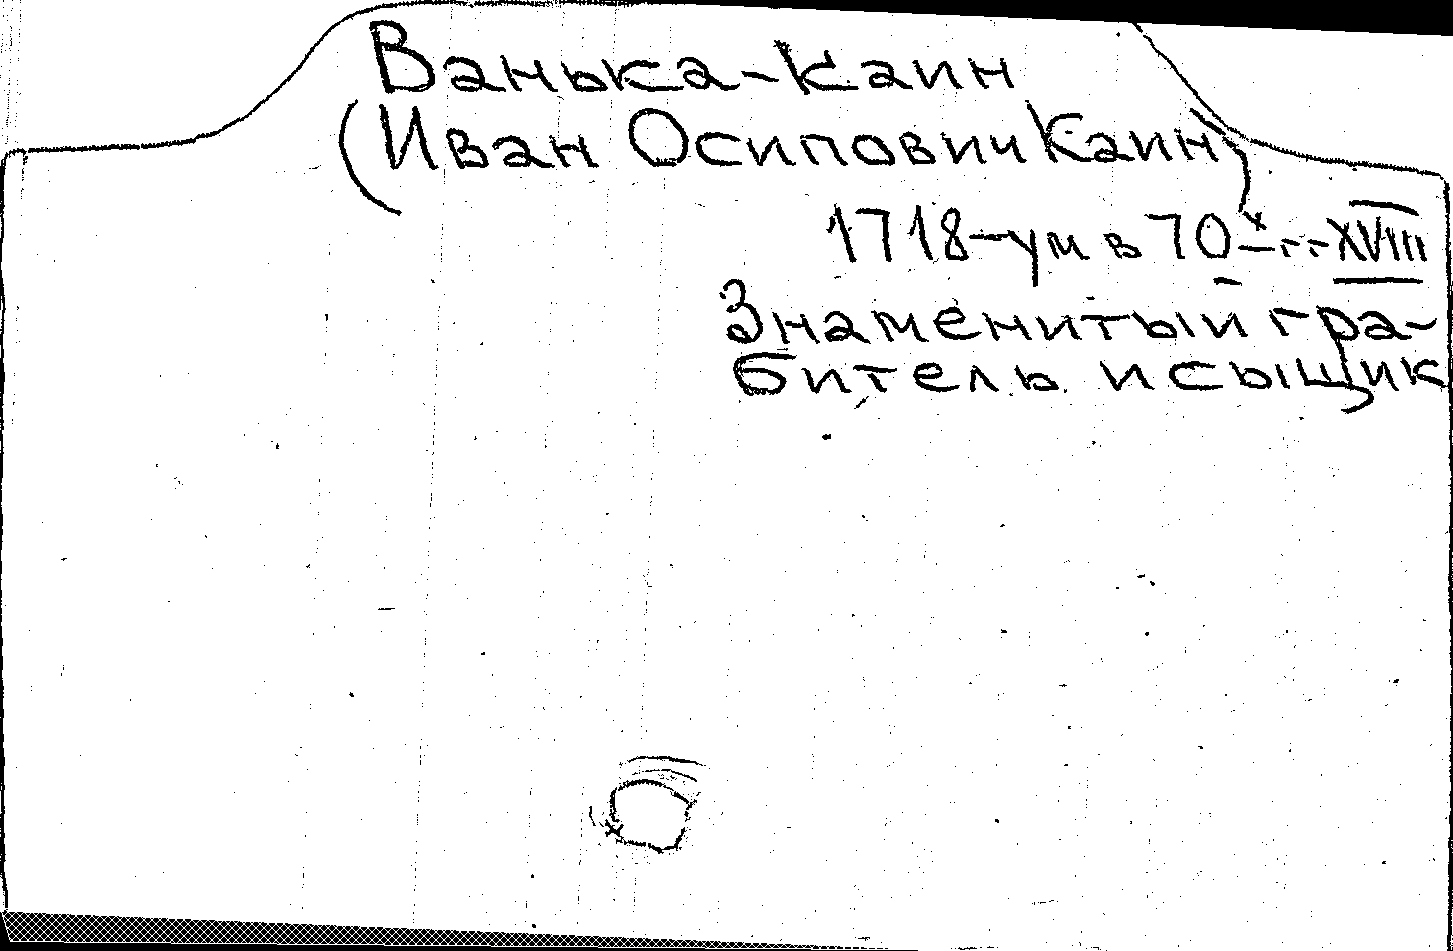 Ванька-Каин
(Иван Осипович Каин)
1718-ум в 70х-г.г. XVIII
Знаменитый гра-
битель и сыщик